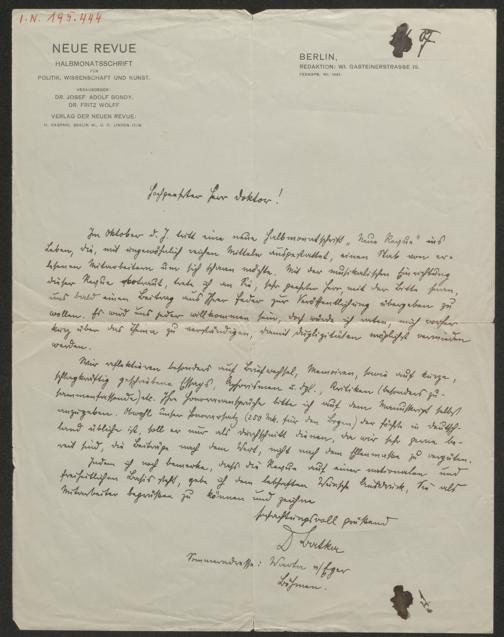 I.N. 195.444
NEUE REVUE
HALBMONATSSCHRIFT
FÜR
POLITIK, WISSENSCHAFT UND KUNST.
HERAUSGEBER:
DR. JOSEF ADOLF BONDY.
DR. FRITZ WOLFF
VERLAG DER NEUEN REVUE:
BERLIN,
REDAKTION: W. GASTEINERSTRASSE
Hochgeehrter Herr Doktor!
Im Oktober d. J. tritt eine neue Halbmonatsschrift „Neue Revue" ins
Leben, die, mit ungewöhnlich reichen Mitteln ausgestattet, einen Stab von er-
lesenen Mitarbeitern um sich scharen möchte. Mit der musikalischen Einrichtung
dieser Revue betraut, trete ich an Sie, sehr geehrter Herr, mit der Bitte heran,
uns bald einen Beitrag aus Ihrer Feder zur Veröffentlichung übergeben zu
wollen. Es wird uns jeder willkommen sein, doch würde ich raten, mich vorher
kurz über das Thema zu verständigen, damit Duplizitäten möglichst vermieden
werden.
Wir reflektieren besonders auf Briefwechsel, Memoiren, sowie auf kurze,
schlagkräftig geschriebene Essays, Aphorismen u. dgl., Kritiken (besonders zu-
sammenfassende) etc. Ihre Honoraransprüche bitte ich auf dem Manuskript selbst
anzugeben. Obwohl unser Honorarsatz (250 Mk. für den Bogen) der höchste in Deutsch-
land übliche ist, soll er nur als Durchschnitt dienen, da wir sehr gerne be-
reit sind, die Beiträge nach dem Wert, nicht nach dem Ellenmaße zu vergüten.
Indem ich noch bemerke, dass die Revue auf einer nationalen und
freiheitlichen Basis steht, gebe ich dem lebhaften Wunsche Ausdruck, Sie als
Mitarbeiter begrüßen zu können und zeichne
hochachtungsvoll grüßend
Batka
Sommeradresse: Warta a/Eger
Böhmen.